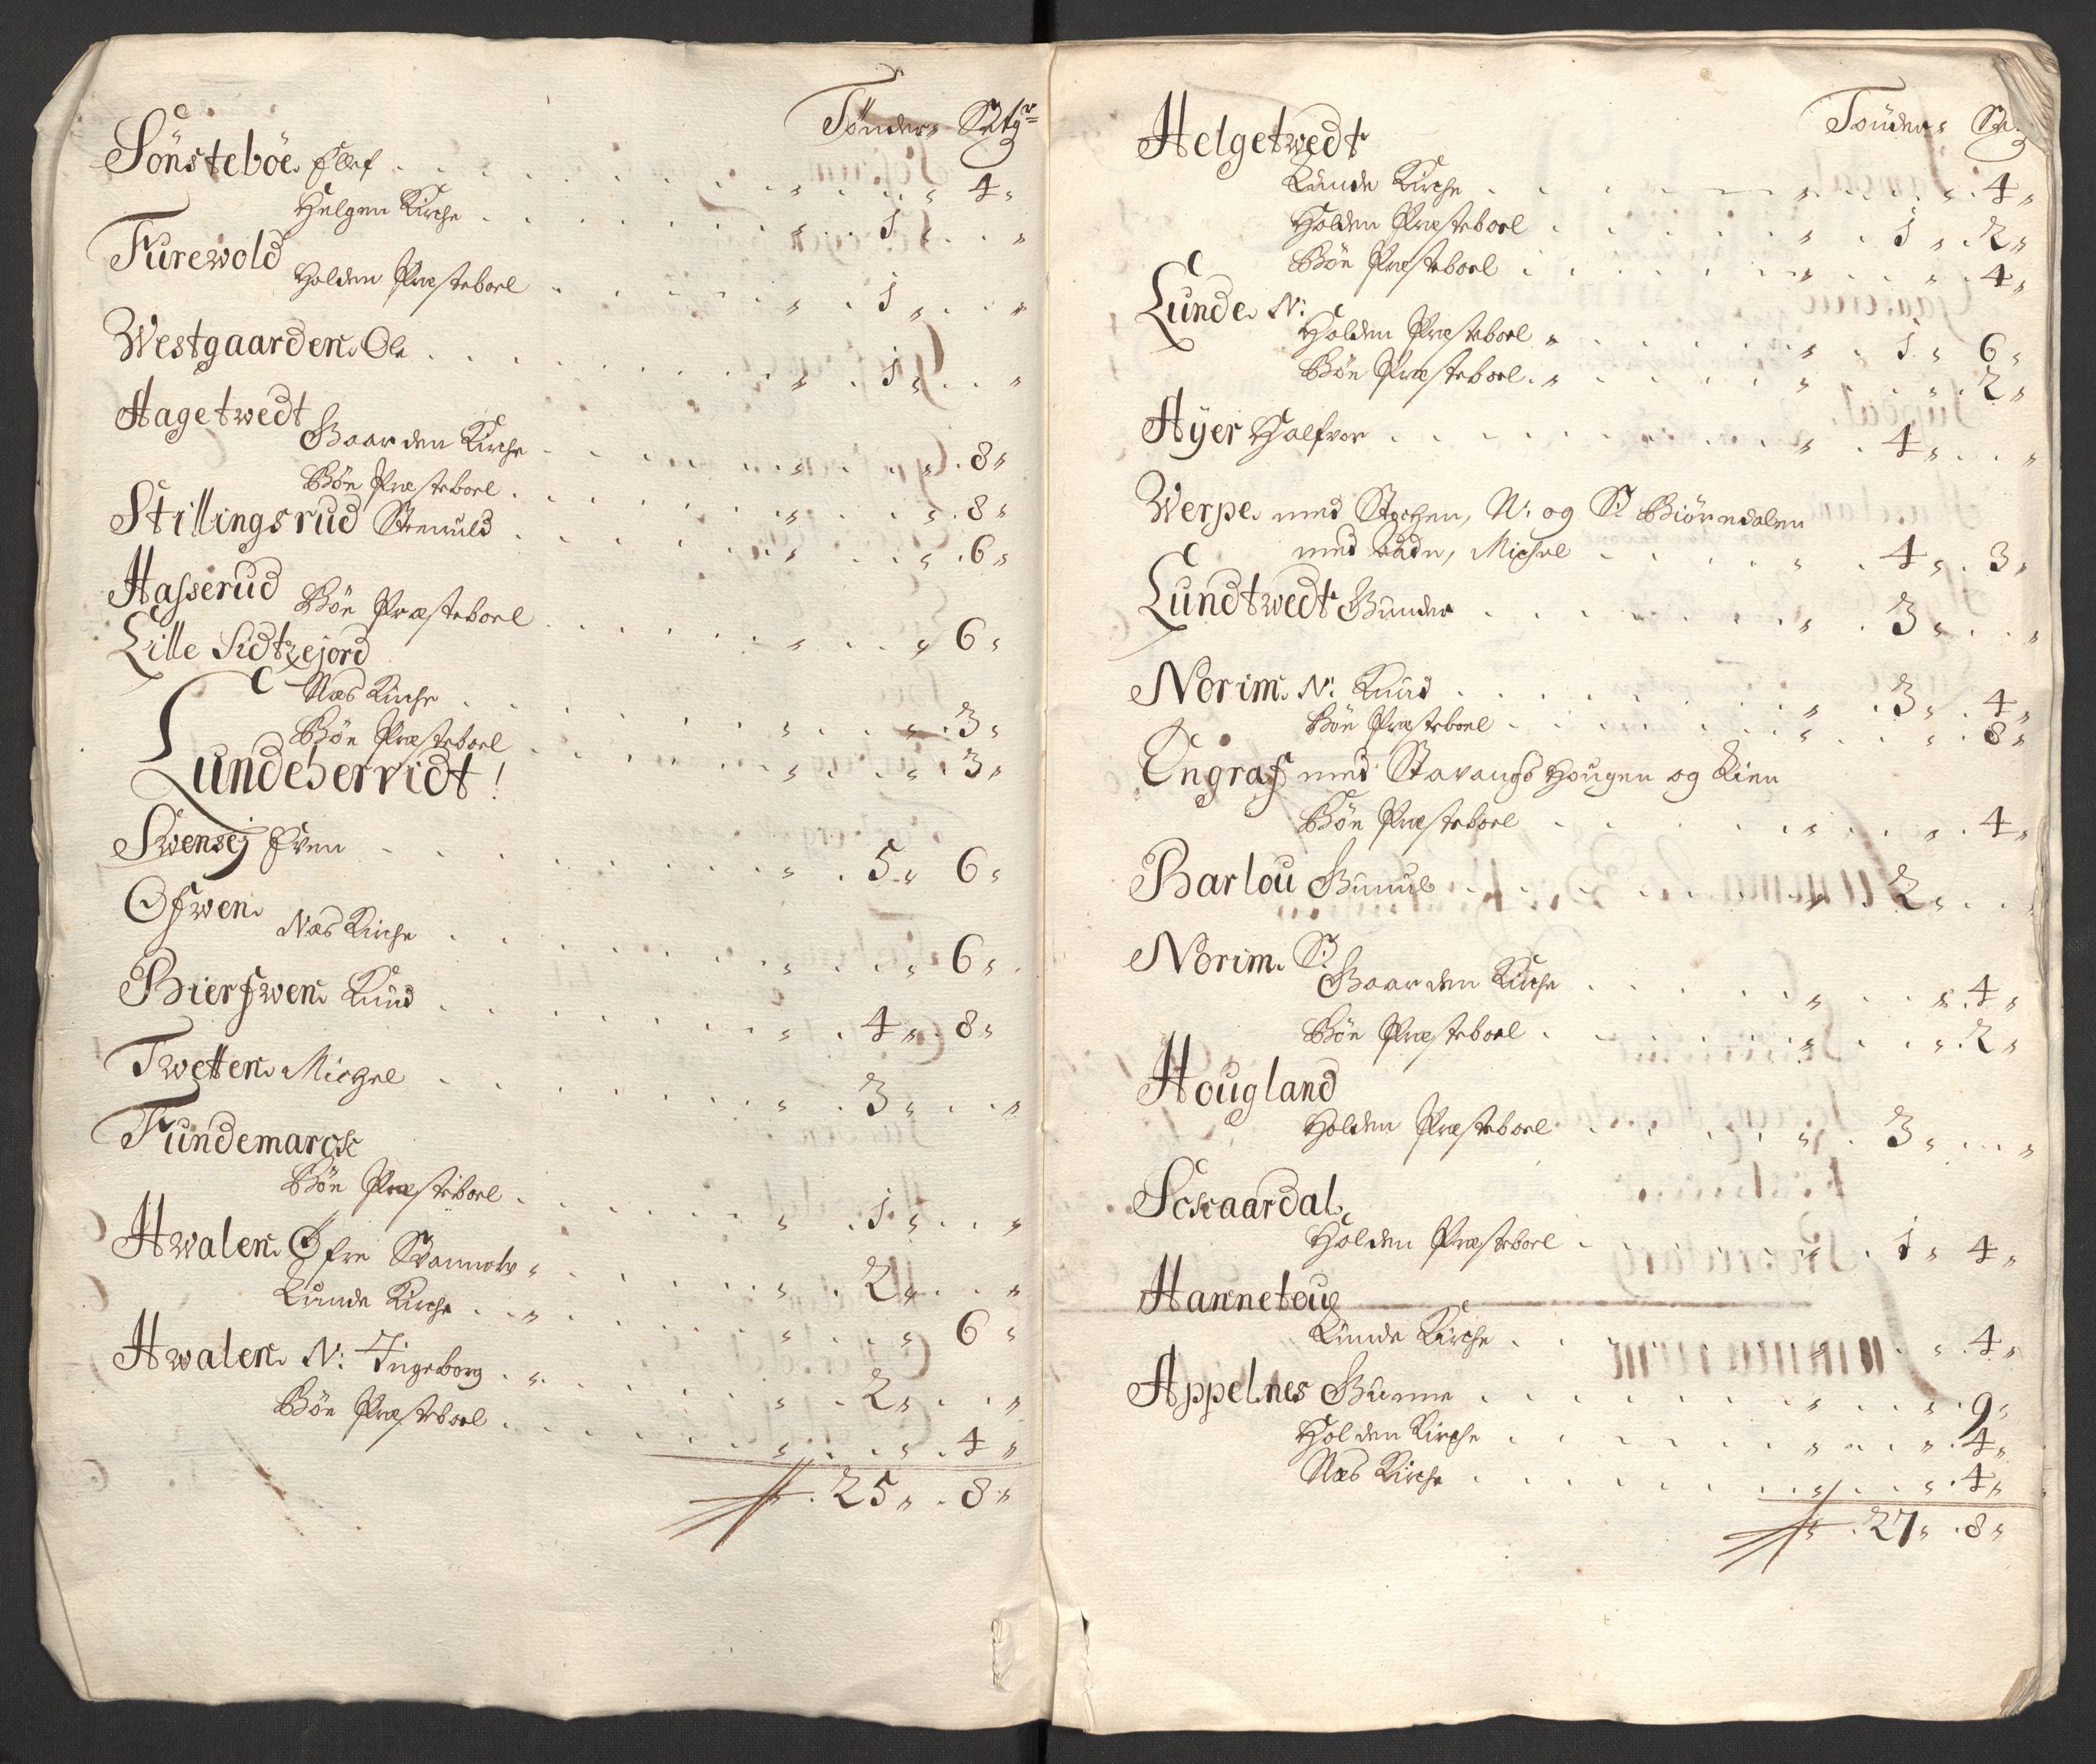 Tönder Setg:
Sönsteböe Ellef . . . . " 4 "
Helgen Kirche . . . . " 1 " . . "
Turewold
Holden Præsteboel . . . . " 1 " . . "
Westgaarden Ole . . . . " 1 " . . "
Aagetwedt
Gaarden Kirche . . . . " . 8 "
Böe Præsteboel . . . . " . 8 "
Stillingsrud Stenuld . . . . " . 6 "
Hasserud Böe Præsteboel . . . . " 6 "
Lille Sidtzejord
Næs Kirche . . . . " . 3 "
Böe Præsteboel . . . . " . 3 "
Lundeherridt!
Swensej Even . . . . " . 5 " 6 "
Ofwen
Næs Kirche . . . . " 6 "
Bierfwen Knud . . . . " . 4 " . 8 "
Twetten Michel . . . . " . 3 " . . "
Tundemarck
Böe Præsteboel . . . . " . 1 " . . "
Hwalen Øfre " . . . . " . 2 " . . "
Lunde Kirche . . " . . . . " 6 "
Hwalen N: Ingeborg . " . . . . " . 2 " . . "
Böe Præsteboel . . . . " . 4 "
" . 25 " . 8 "
Tönder
Helgetwedt
Lunde Kirche . . . . " . 4 "
Holden Præsteboel . . . . " . 1 " . 2 "
Böe Præsteboel . . . . " 4 "
Lunde N:
Holden Præsteboel " . . . . " . 1 " 6 "
Böe Præsteboel . " . . . . " . 2 "
Aÿer Halfvor . . . . " . 4 " . . "
Werpe med Stychen, N: og S: Biörndalen
med Michel . . . . " . 4 " . 3 "
Lundtwedt Gunder . . . . " . 3 " . . "
Norim N: Knud . . . . " . 3 " . 4 "
Böe Præsteboel . . . . " . 8 "
Engraf med Stavangs Hougen og Kien
Böe Præsteboel . . . . " . 4 "
Barlou Gunuld . . . . " . 2 " . . "
Norim S:
Gaarden Kirche . . . . " . 4 "
Böe Præsteboel . . . . " . 2 "
Hougland
Holden Præsteboel . . . . " . 3 " . . "
Sckaardal
Holden Præsteboel . . . . " . 1 " 4 "
Hannetoug
Lunde Kirche . . . . " . 4 "
Appelnes Gunne . . . . " . 9 "
Holden Kirche . . . . " . 4 "
Næs Kirche . . . . " . 4 "
" . 27 " . 8 "